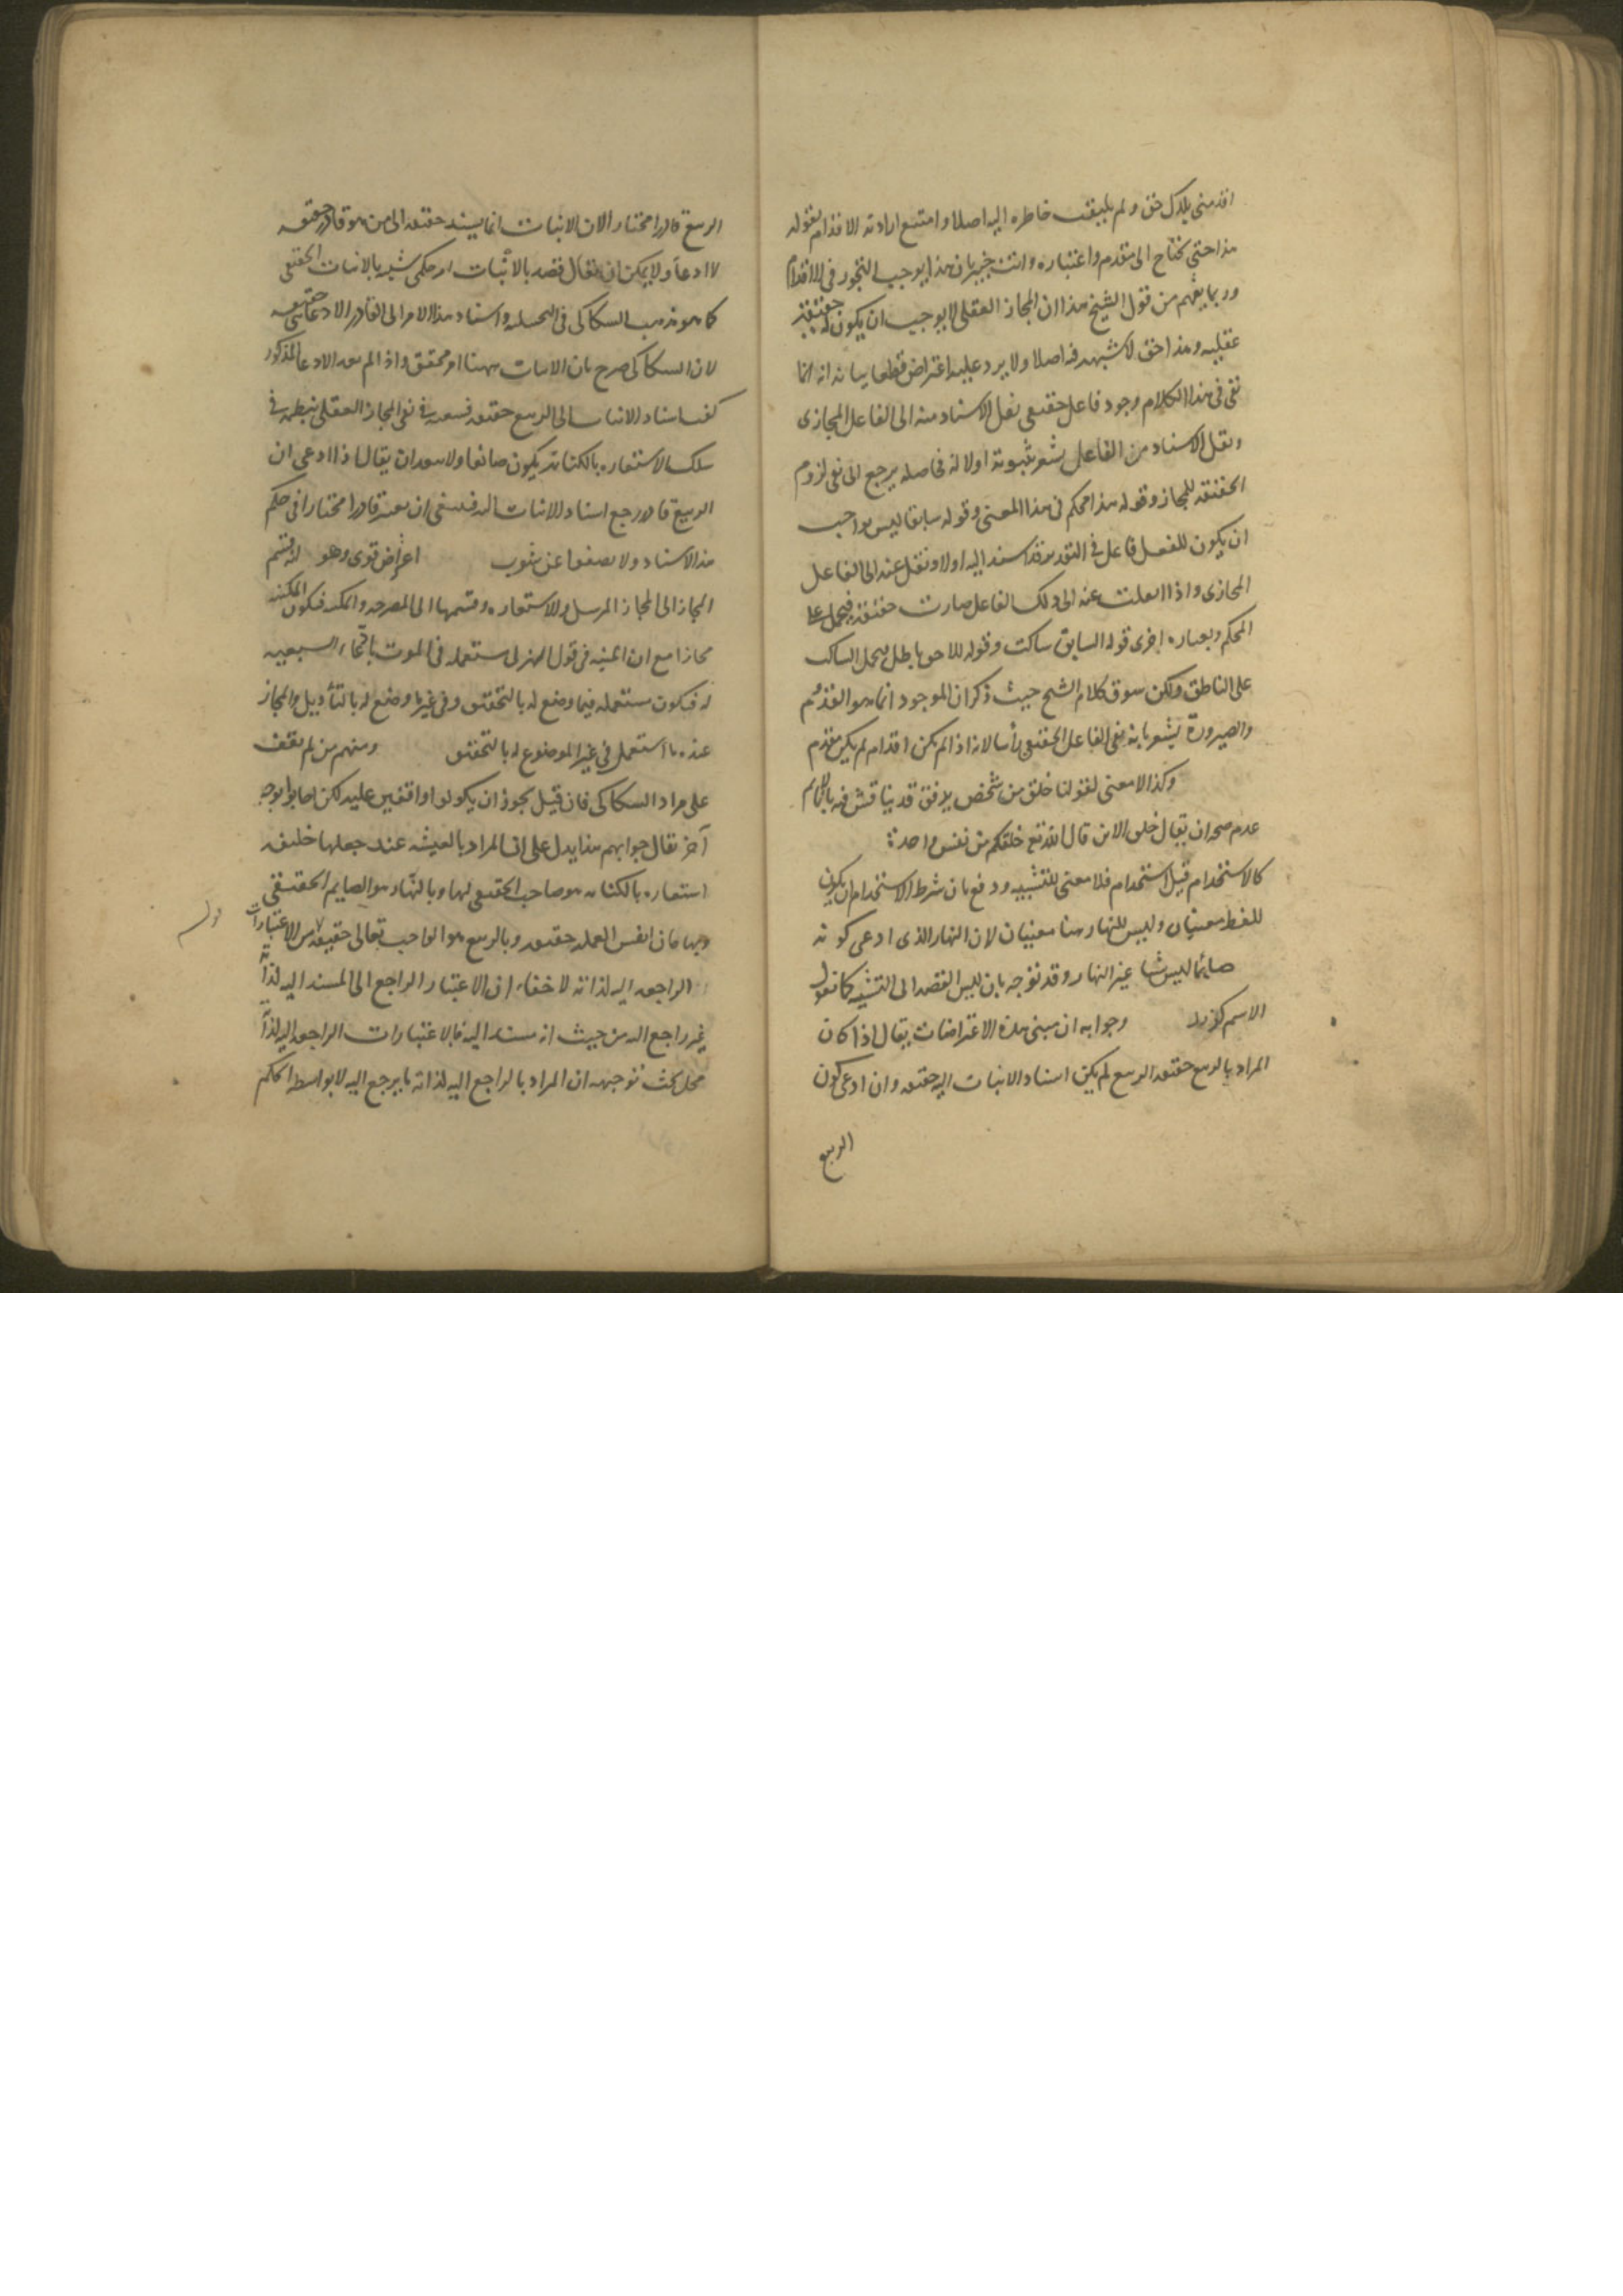 اقدمنى بلدك حق ولم يلتفت خاطره اليه اصلا وامتنع ارادته الاقدام بقوله
هذا حتى يحتاج الى مقدم واعتباره وانت خبير بان هذا يوجب التجوز فى الاقدام
وربما يفهم من قول الشيخ هذا ان المجاز العقلى لا يوجب ان يكون له حقيقة
عقلية وهذا حق لا شبهة فيه اصلا ولا يرد عليه اعتراض قطعا بيانه انه انما
نفى فى هذا الكلام وجود فاعل حقيقى نقل الاسناد منه الى الفاعل المجازى
ونقل الاسناد من الفاعل يشعر بثبوته اولا له فحاصله يرجع الى نفى لزوم
الحقيقة للمجاز وقوله هذا محكم فى هذا المعنى وقوله سابقا ليس بواجب
ان يكون للفعل فاعل فى التقدير قد اسند اليه اولا ونقل عنه الى الفاعل
المجازى واذا نقلت عنه الى ذلك الفاعل صارت حقيقة فيحمل على
المحكم وبعباره اخرى قوله السابق ساكت وقوله اللاحق باطل يحمل الساكت
على الناطق ولكن سوق كلام الشيخ حيث ذكر ان الموجود انما هو القدوم
والصيرورة يشعر بانه نفى الفاعل الحقيقى رأسا لانه اذا لم يكن اقدام لم يكن مقدم
وكذا لا معنى لقولنا خلق من شخص بلا فق قد يناقش فيه بانه لم
عدم صحة ان يقال خلق الابن قال الله تع خلقكم من نفس واحدة
كالاستخدام قيل استخدام فلا معنى للتشبيه ودفع بان شرط الاستخدام ان يكون
للفظ معنيان وليس للنهار هنا معنيان لان النهار الذى ادعى كونه
صائما ليس شيئا غير النهار وقد نوجه بان ليس القصد الى التشبيه كما نقول
الاسم كزيد وجوابه ان مبنى هذه الاعتراضات يقال اذا كان
المراد بالربيع حقيقة الربيع لم يكن اسناد الانبات اليه حقيقة وان ادعى كون
الربيع
الربيع قادرا مختارا لان الانبات انما يسند حقيقة الى من هو قادر حقيقة
لا ادعاء ولا يمكن ان يقال قصد بالاثبات امر حكمى شبيه بالانبات الحقيقى
كما هو مذهب السكاكى فى التخييلية واسناد هذا الامر الى القادر الادعائى حقيقة
لان السكاكى صرح بان الانبات ههنا امر محقق واذا لم يعد الادعا المذكور
كون اسناد الانبات الى الربيع حقيقة فسعيه فى نفى المجاز العقلى بنظمه فى
سلك الاستعاره بالكناية يكون ضائعا ولا يبعد ان يقال اذا ادعى ان
الربيع قادر رجع اسناد الانبات اليه فينبغى ان يعتبر قادرا مختارا فى حكم
هذا الاسناد ولا يصفوا عن شوب اعتراض قوى وهو انه قسم
المجاز الى المجاز المرسل والاستعاره وقسمها الى المصرحة والمكنية فيكون المكنية
مجازا مع ان المنية فى قول الهذلى مستعملة فى الموت بادعاء السبعية
له فيكون مستعملة فيما وضع له بالتحقيق وفى غير ما وضع له بالتأويل والمجاز
عنده ما استعمل فى غير الموضوع له بالتحقيق ومنهم من لم يقف
على مراد السكاكى فان قيل يجوز ان يكونوا واقفين عليه لكن اجابوا بوجه
آخر نقال جوابهم هذا يدل على ان المراد بالعيشه عند جعلها
استعاره بالكناية هو صاحب الحقيقى لها وبالنهار هو الصايم الحقيقى
وبهامان انفس العملة حقيقة وبالربيع هو الواجب تعالى حقيقة من الاعتبارات
الراجعة اليه لذاته لا خفاء ان الاعتبار الراجع الى المسند اليه لذاته
غير راجع اليه من حيث انه مسند اليه فالاعتبارات الراجعة اليه لذاته
محل بحث توجيهه ان المراد بالراجع اليه لذاته ما يرجع اليه لا بواسطة الحكم